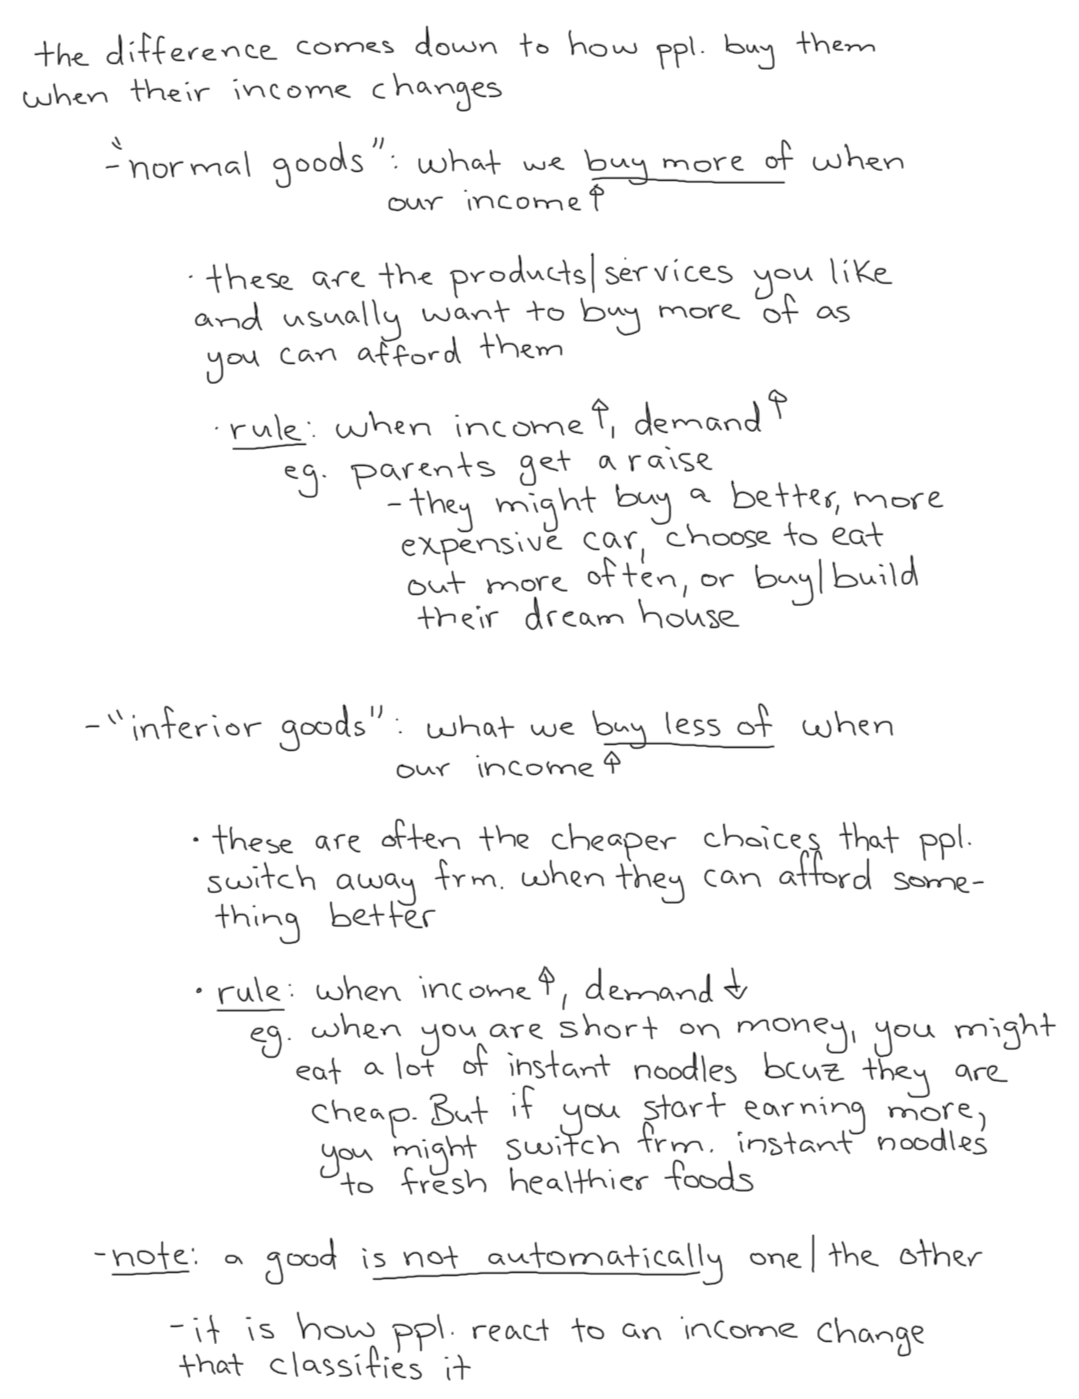 the difference comes down to how ppl. buy them
when their income changes
-"normal goods": what we buy more of when
our income↑
· these are the products/services you like
and usually want to buy more of as
you can afford them
· rule: when income↑, demand↑
eg. parents get a raise
- they might buy a better, more
expensive car, choose to eat
out more often, or buy/build
their dream house
-"inferior goods": what we buy less of when
our income↑
· these are often the cheaper choices that ppl.
switch away frm. when they can afford some-
thing better
· rule: when income↑, demand↓
eg. when you are short on money, you might
eat a lot of instant noodles bcuz they are
cheap. But if you start earning more,
you might switch frm. instant noodles
to fresh healthier foods
-note: a good is not automatically one/the other
-it is how ppl. react to an income change
that classifies it